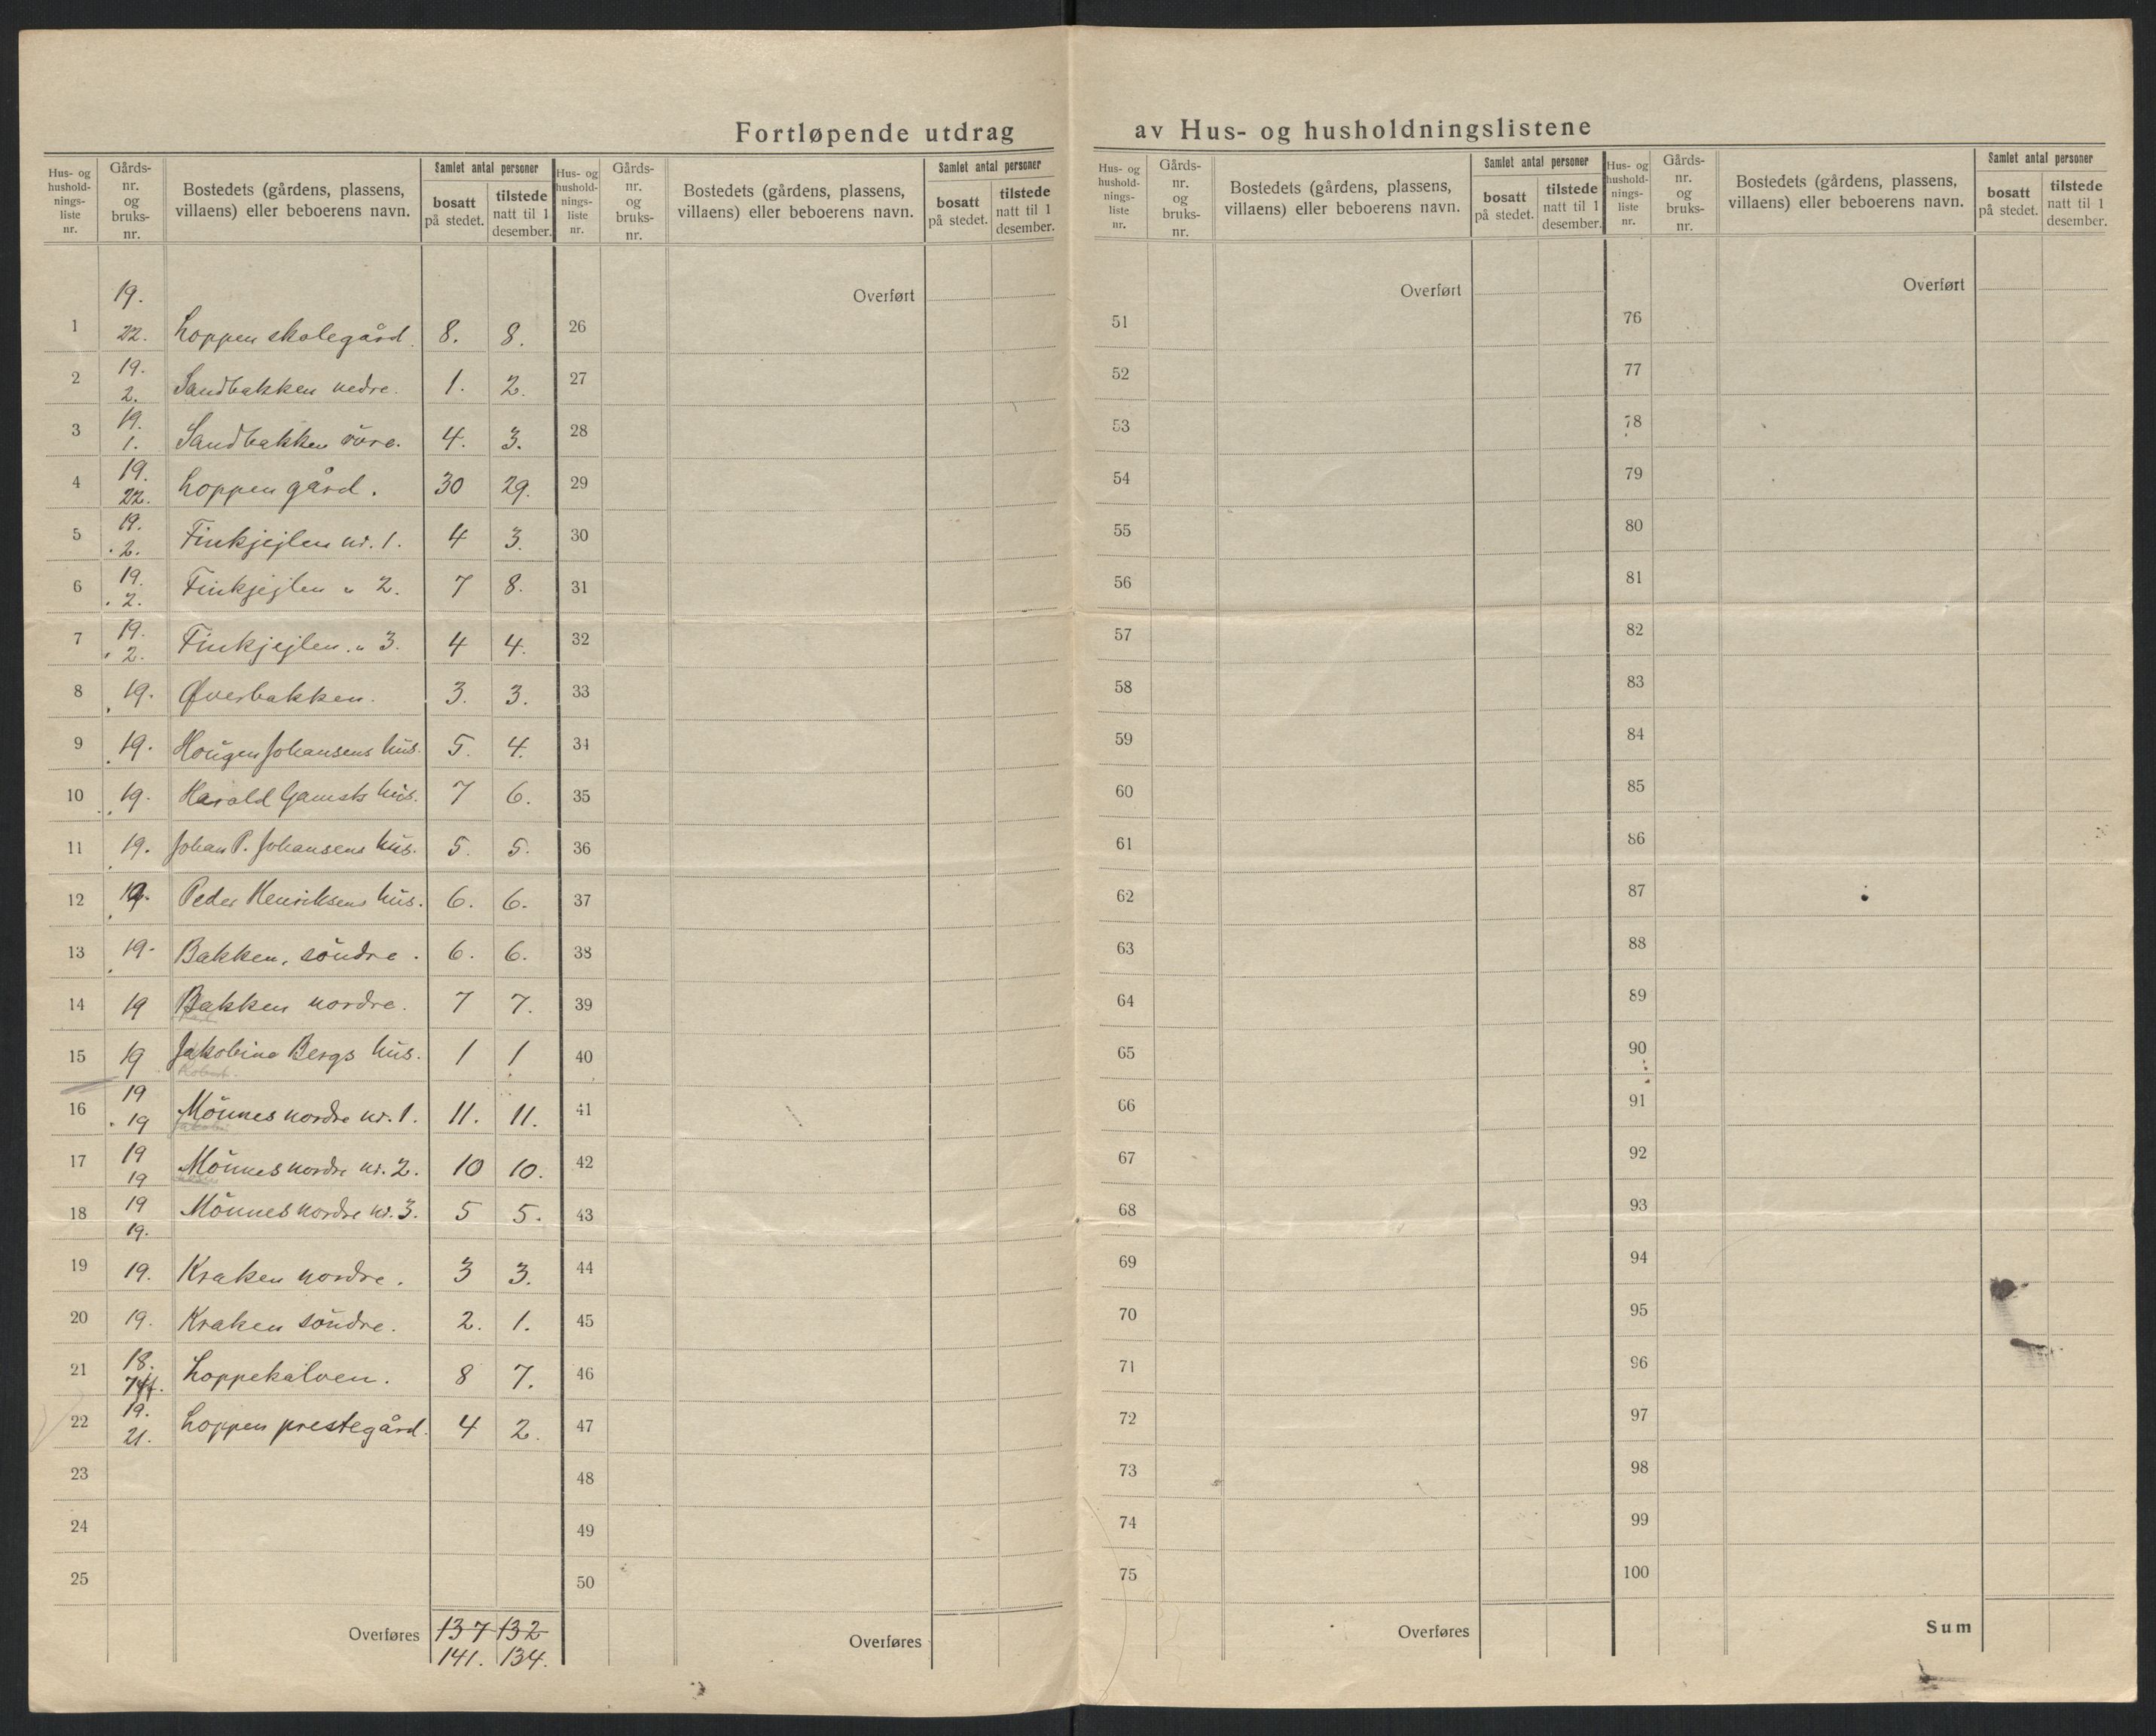 Fortløpende utdrag av Hus- og husholdningslistene
Hus- og husholdnings-liste nr. | Gårds-nr. og bruks-nr. | Bostedets (gårdens, plassens, villaens) eller beboerens navn. | Samlet antal personer | bosatt på stedet. | tilstede natt til 1 desember.
1 19. 22. Loppen skolegård. 8. 8.
2 19. 2. Sandbakken nedre. 1. 2.
3 19. 1. Sandbakken övre. 4. 3.
4 19. 22. Loppen gård. 30 29.
5 19. 2. Finkjejlen nr. 1. 4 3.
6 19. 2. Finkjejlen " 2. 7 8.
7 19. 2. Finkjejlen. " 3. 4 4.
8 19. Øverbakken. 3. 3.
9 19. Hougen Johansens hus. 5. 4.
10 19. Harald Gamsts hus. 7 6.
11 19. Johan P. Johansens hus. 5. 5.
12 19. Peder Henriksens hus. 6. 6.
13 19. Bakken, söndre. 6. 6.
14 19 Bakken nordre. 7 7.
15 19 Jakobine Bergs hus. 1 1
16 19 19 Mönnes nordre nr. 1. 11. 11.
17 19 19 Mönnes nordre nr. 2. 10 10.
18 19 19. Mönnes nordre nr. 3. 5 5.
19 19. Kraken nordre. 3 3.
20 19. Kraken söndre. 2. 1.
21 18. Loppekalven. 8 7.
22 19. 21. Loppen prestegård. 4 2.
23
24
25
Overføres 137 132
141. 134.
Hus- og husholdnings-liste nr. | Gårds-nr. og bruks-nr. | Bostedets (gårdens, plassens, villaens) eller beboerens navn. | Samlet antal personer | bosatt på stedet. | tilstede natt til 1 desember.
Overført
26
27
28
29
30
31
32
33
34
35
36
37
38
39
40
41
42
43
44
45
46
47
48
49
50
Overføres
Hus- og husholdnings-liste nr. | Gårds-nr. og bruks-nr. | Bostedets (gårdens, plassens, villaens) eller beboerens navn. | Samlet antal personer | bosatt på stedet. | tilstede natt til 1 desember.
Overført
51
52
53
54
55
56
57
58
59
60
61
62
63
64
65
66
67
68
69
70
71
72
73
74
75
Overføres
Hus- og husholdnings-liste nr. | Gårds-nr. og bruks-nr. | Bostedets (gårdens, plassens, villaens) eller beboerens navn. | Samlet antal personer | bosatt på stedet. | tilstede natt til 1 desember.
Overført
76
77
78
79
80
81
82
83
84
85
86
87
88
89
90
91
92
93
94
95
96
97
98
99
100
Sum